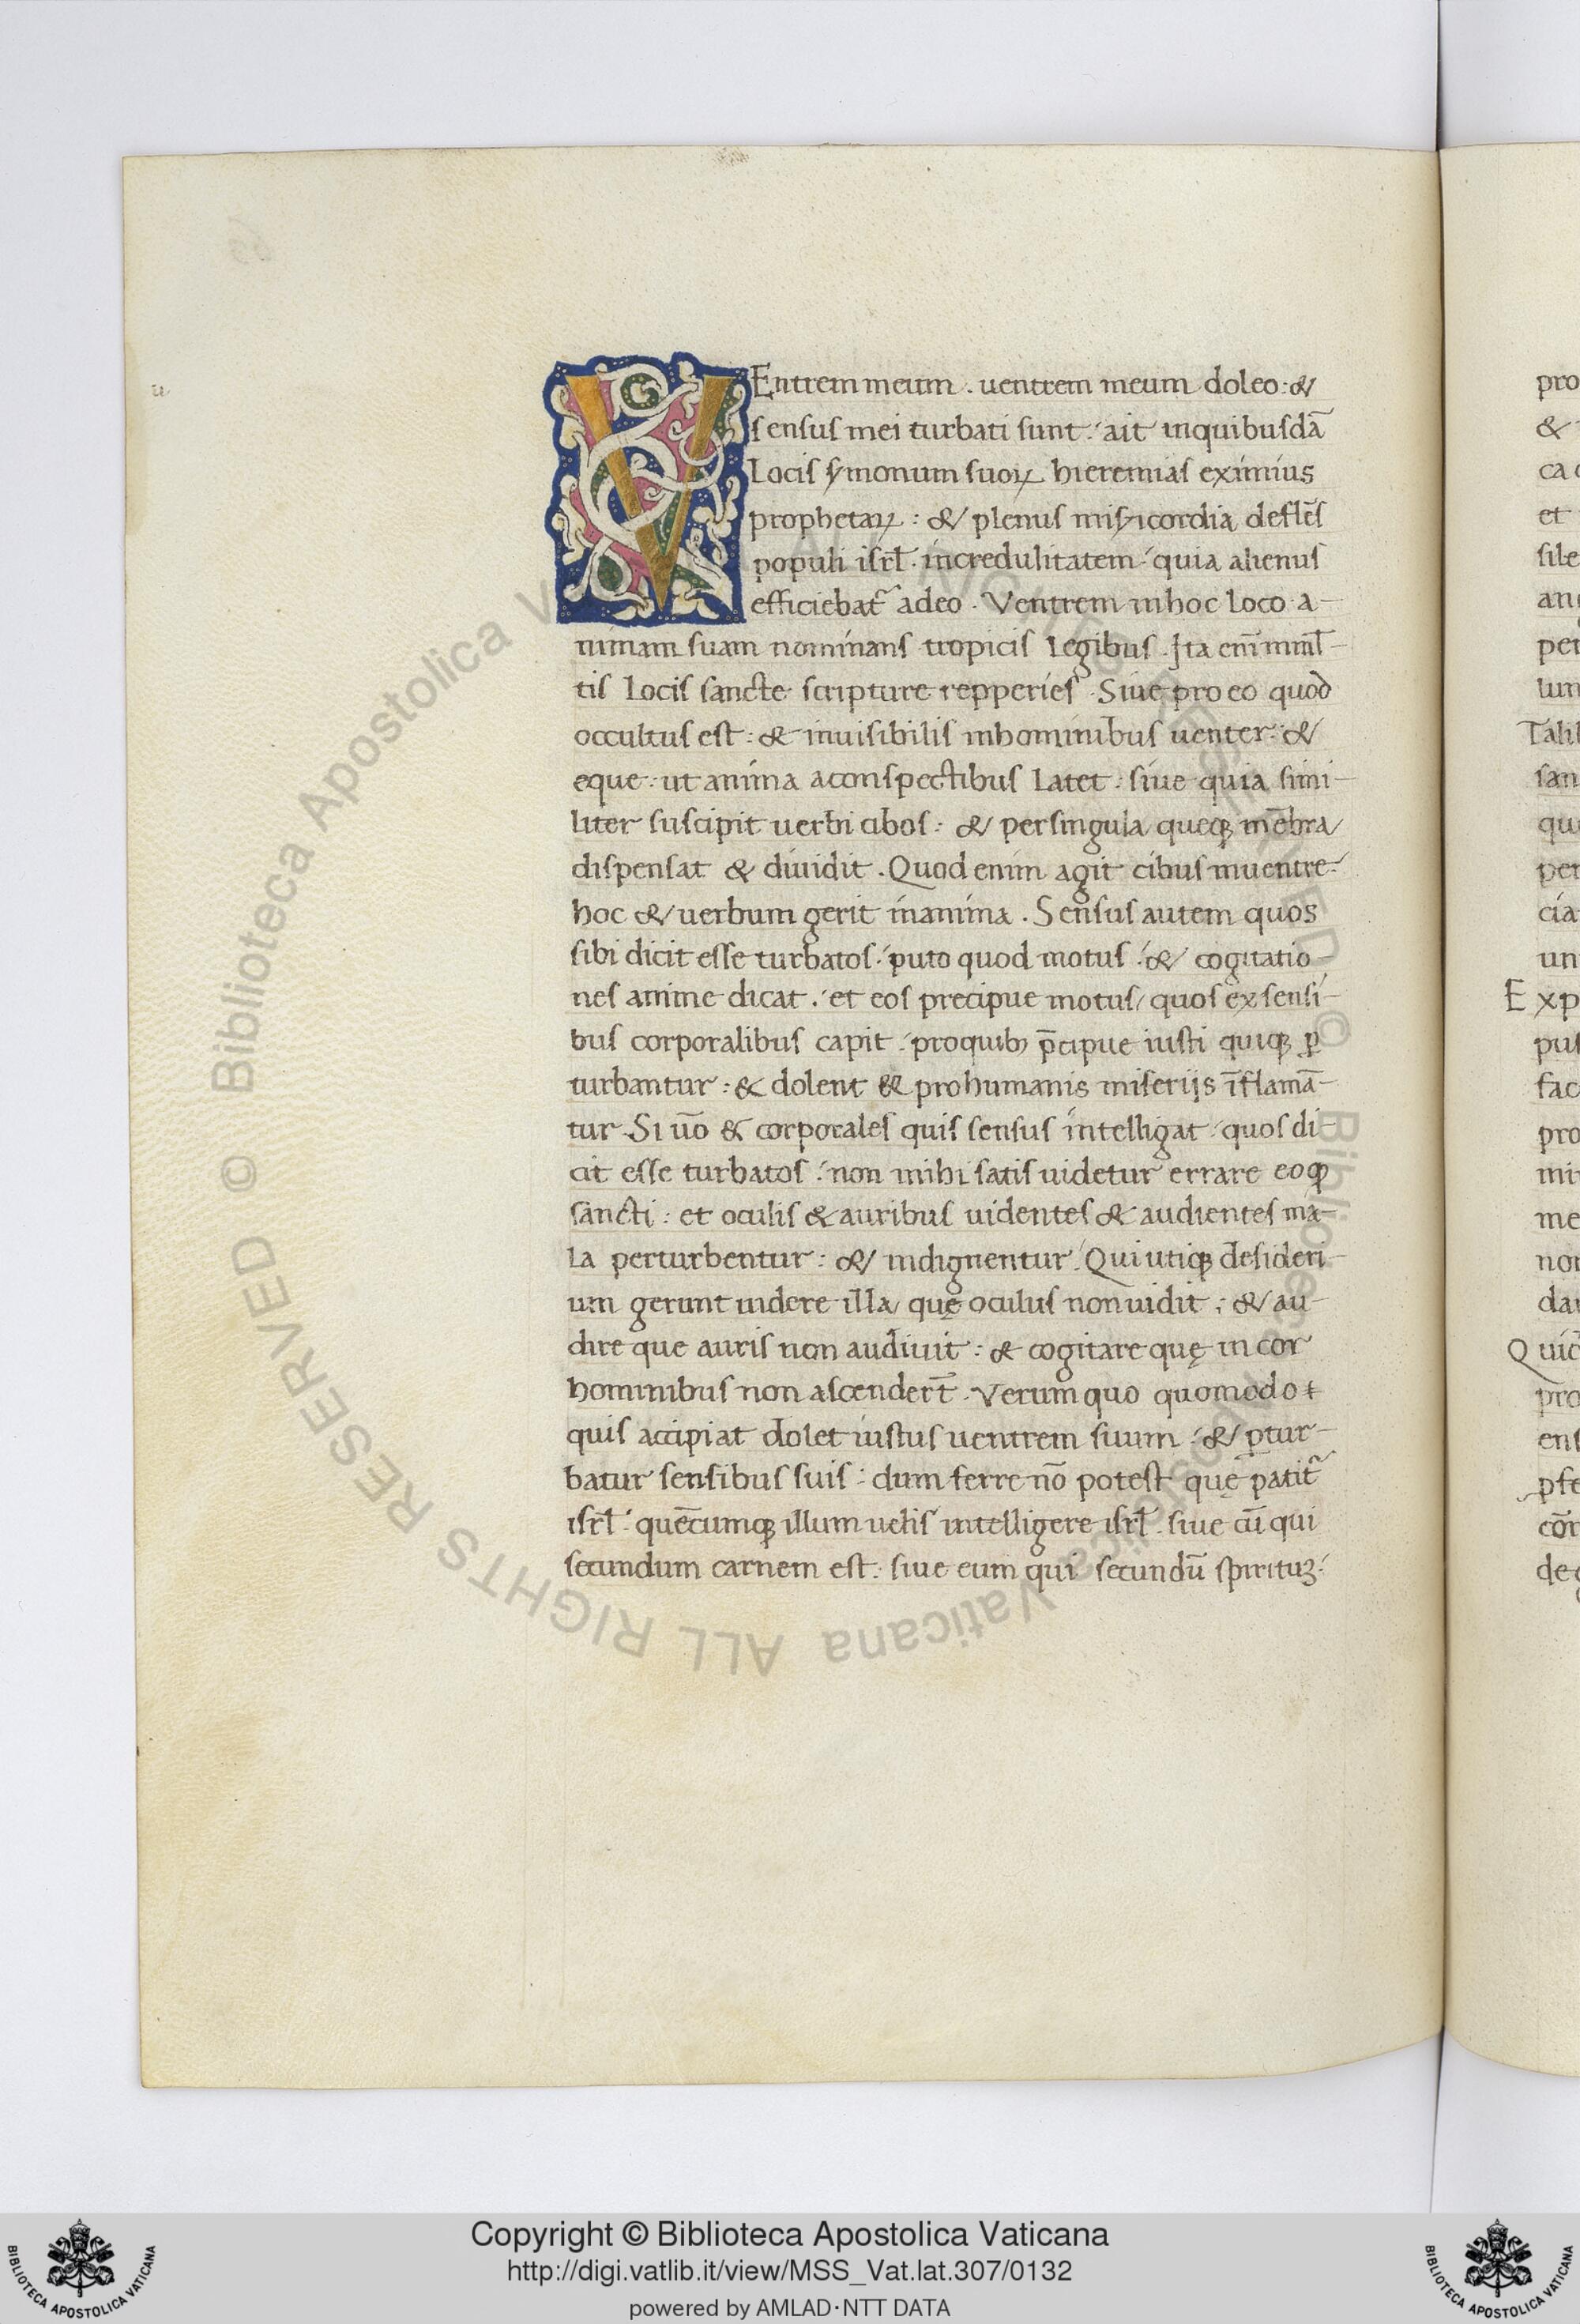 VEntrem meum . uentrem meum doleo : &
sensus mei turbati sunt : ait inquibusdā
Locis s̄monum suoꝝ hieremias eximius
prophetaꝝ : & plenus mis̄icordia deflēs
populi isrl̄ . incredulitatem . quia alienus
efficiebat᷑ adeo . Ventrem inhoc loco a-
nimam suam nominans tropicis legibus . Ita enī in ml̄-
tis Locis sancte scripture repperies . Siue pro eo quod
occultus est : & inuisibilis inhominibus uenter : &
eque : ut anima aconspectibus Latet : siue quia simi-
liter suscipit uerbi cibos : & persingula queqꝫ mēbra
dispensat & diuidit . Quod enim agit cibus inuentre
hoc & uerbum gerit inanima . Sensus autem quos
sibi dicit esse turbatos . puto quod motus : & cogitatio-
nes anime dicat . et eos precipue motus / quos ex sensi-
bus corporalibus capit . proquibꝫ p̄cipue iusti quiqꝫ ꝑ
turbantur : & dolent & prohumanis miserijs īflamā-
tur . Si ūo & corporales quis sensus intelligat . quos di-
cit esse turbatos : non mihi satis uidetur errare eo qꝫ
sancti : et oculis & auribus uidentes & audientes ma-
la perturbentur : & indignentur . Qui utiqꝫ desideri-
um gerunt uidere illa / quę oculus non uidit ; & au-
dire que auris non audiuit : & cogitare quę in cor
hominibus non ascender̄t . Verum quo quomodo
quis accipiat dolet iustus uentrem suum : & ꝑtur-
batur sensibus suis : dum ferre nō potest quę patit᷑
isrl̄ . quēcumqꝫ illum uelis intelligere isrl̄ . siue eū qui
secundum carnem est : siue eum qui secundū spirituꝫ .
pro
&
et
pro
Copyright © Biblioteca Apostolica Vaticana
http://digi.vatlib.it/view/MSS_Vat.lat.307/0132
powered by AMLAD·NTT DATA
BIBLIOTECA APOSTOLICA VATICANA
BIBLIOTECA APOSTOLICA VATICANA